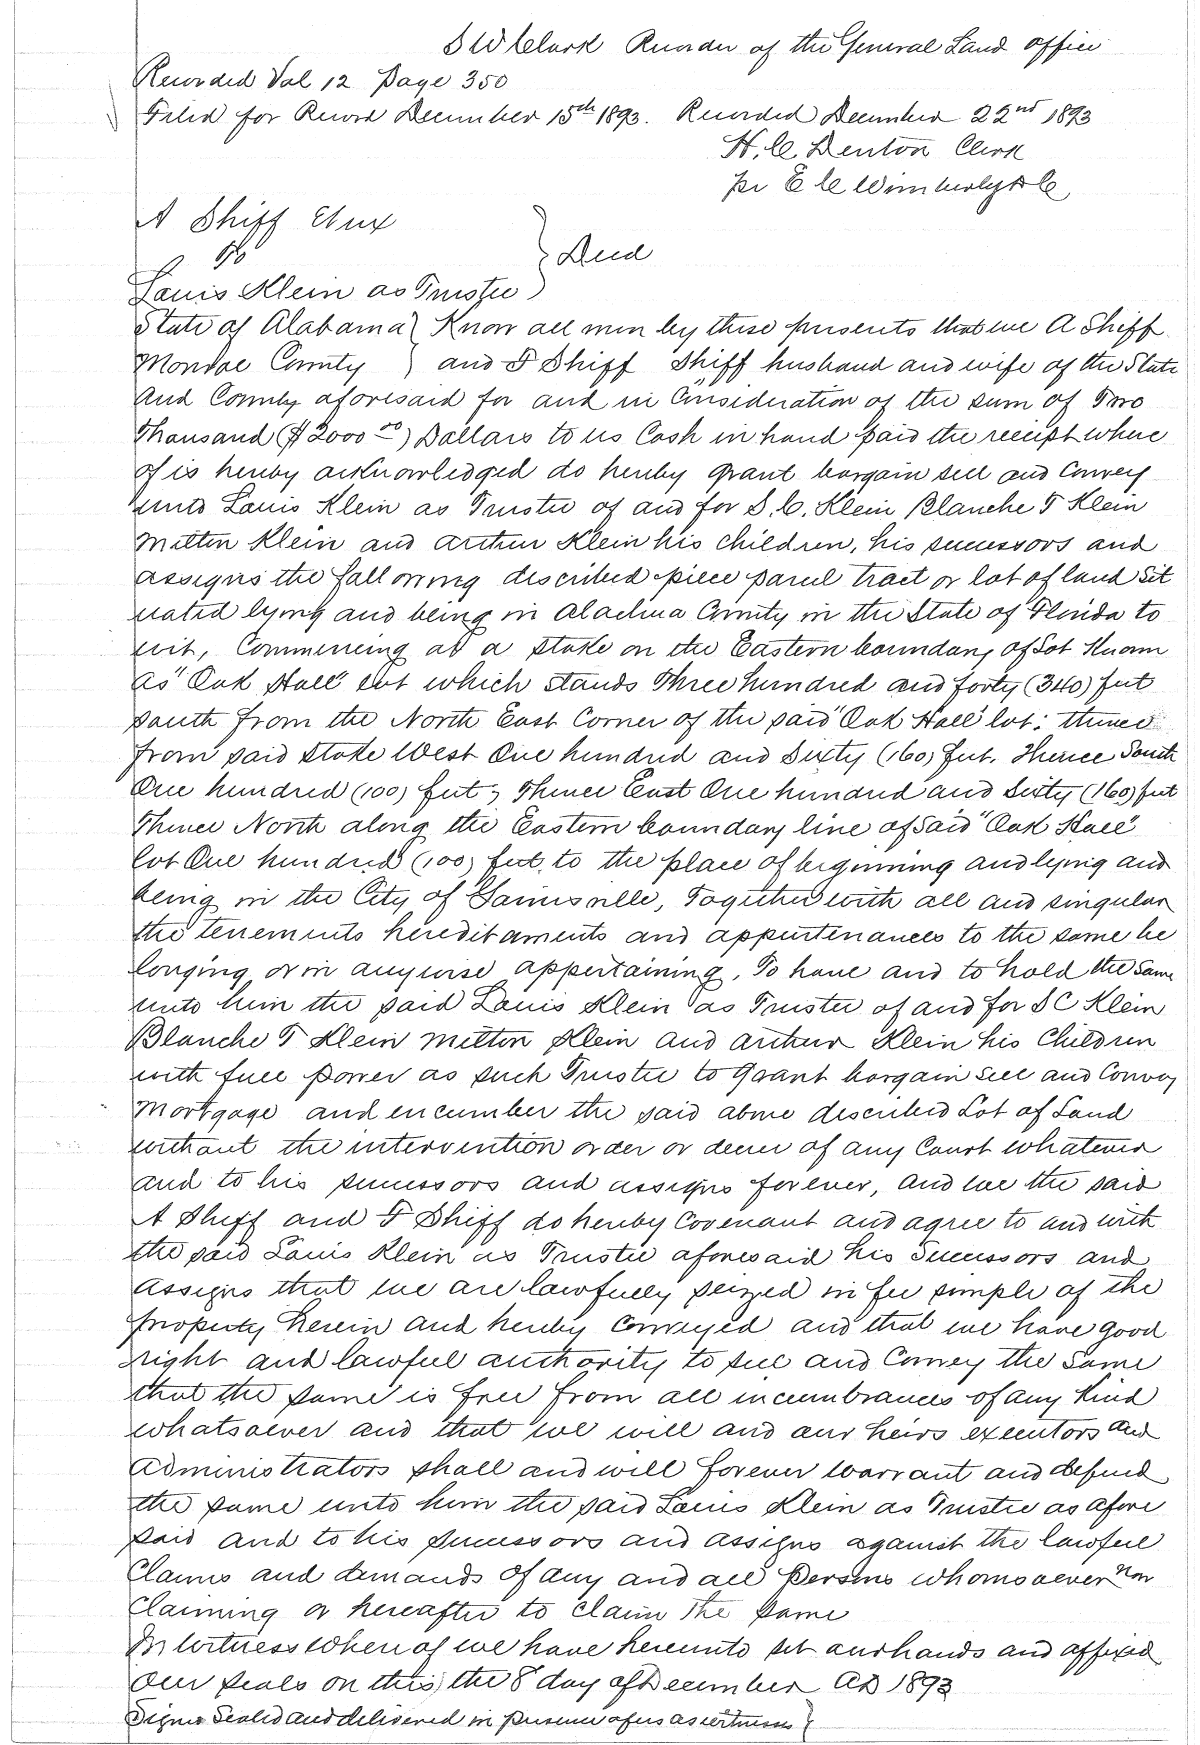 S W Clark Recorder of the General Land office
Recorded Vol 12 Page 350
Filed for Record December 15th 1893. Recorded December 22nd 1893
H. C. Denton Clerk
pr E C Wimberly D C,
A Shiff Et ux
to } Deed
Louis Klein as Trustee
State of Alabama } Know all men by these presents that we A Shiff
Monroe County } and F Shiff Shiff husband and wife of the State
And County aforesaid for and in Consideration of the sum of Two
Thousand ($2000 00) Dollars to us Cash in hand paid the receipt where
of is hereby acknowledged do hereby grant bargain sell and Convey
unto Louis Klein as Trustee of and for S. C. Klein Blanche T Klein
Milton Klein and Arthur Klein his children, his successors and
assigns the following described piece parcel tract or lot of land Sit
uated lying and being in Alachua County in the State of Florida to
wit, Commencing at a stake on the Eastern boundary of Lot Known
as "Oak Hall" lot which stands Three hundred and forty (340) feet
south from the North East Corner of the said "Oak Hall" lot: thence
from said stake West One hundred and Sixty (160) feet, Thence South
One hundred (100) feet; Thence East One hundred and Sixty (160) feet
Thence North along the Eastern boundary line of said "Oak Hall"
lot One hundred (100) feet, to the place of beginning and lying and
being in the City of Gainesville, Together with all and singular
the tenements hereditaments and appurtenances to the same be
longing or in anywise appertaining, To have and to hold the same
unto him the said Louis Klein as Trustee of and for S C Klein
Blanche T Klein Milton Klein and Arthur Klein his Children
with full power as such Trustee to Grant bargain sell and Convey
Mortgage and encumber the said above described Lot of Land
without the intervention order or decree of any Court whatever
and to his successors and assigns forever, and we the said
A Shiff and F Shiff do hereby Covenant and agree to and with
the said Louis Klein as Trustee aforesaid his Successors and
Assigns that we are lawfully seized in fee simple of the
property herein and hereby conveyed and that we have good
right and lawful authority to sell and Convey the Same
that the same is free from all incumbrances of any Kind
whatsoever and that we will and our heirs executors and
Administrators shall and will forever warrant and defend
the same unto him the said Louis Klein as Trustee as afore
said and to his successors and assigns against the lawful
Claims and demands of any and all Persons whomsoever now
Claiming or hereafter to claim the same
In Witness whereof we have hereunto set our hands and affixed
our seals on this the 8 day of December AD 1893
Signed Sealed and delivered in presence of us as witnesses }